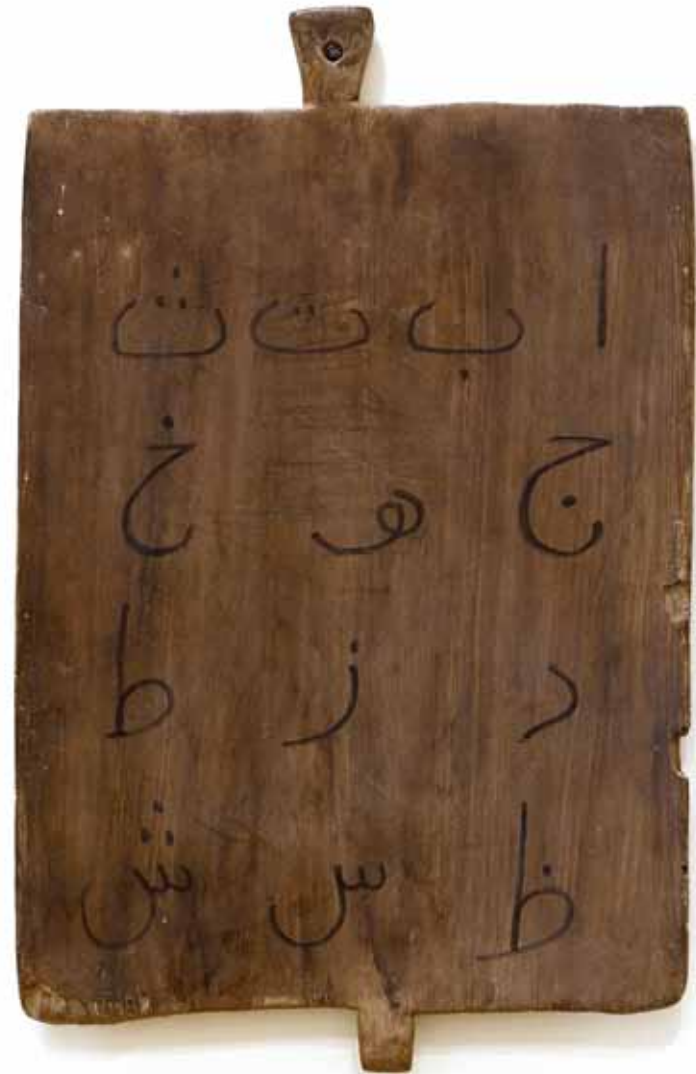 ا ب ت ث
ج هـ خ
د ز ط
ظ س ش